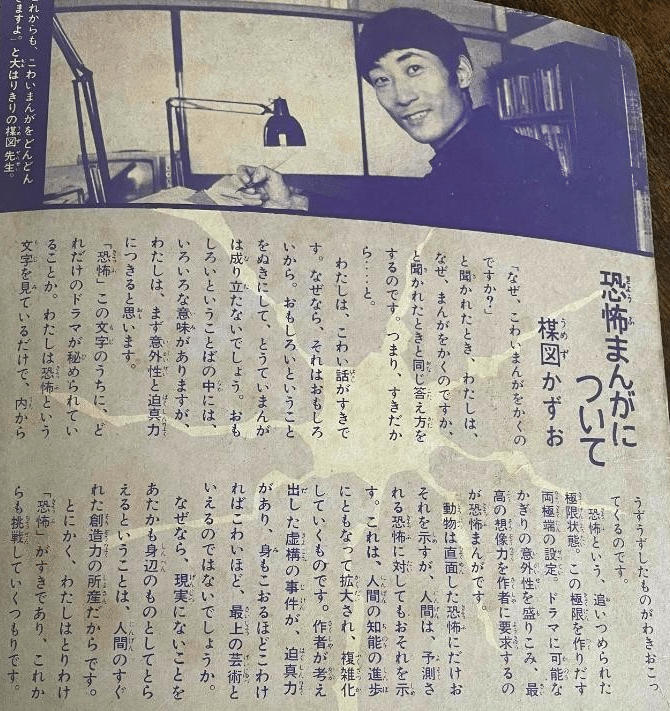 これからも、こわいまんがをどんどん
きますよ」と大はりきりの楳図先生。
恐怖まんがに
ついて
楳図かずお
「なぜ、こわいまんがをかくの
ですか？」
と聞かれたとき、わたしは、
なぜ、まんがをかくのですか、
と聞かれたときと同じ答え方を
するのです。つまり、すきだか
ら‥‥と。
わたしは、こわい話がすきで
す。なぜなら、それはおもしろ
いから。おもしろいということ
をぬきにして、とうていまんが
は成り立たないでしょう。おも
しろいということばの中には、
いろいろな意味がありますが、
わたしは、まず意外性と迫真力
につきると思います。
「恐怖」この文字のうちに、ど
れだけのドラマが秘められてい
ることか。わたしは恐怖という
文字を見ているだけで、内から
うずうずしたものがわきおこっ
てくるのです。
恐怖という、追いつめられた
極限状態。この極限を作りだす
両極端の設定。ドラマに可能な
かぎりの意外性を盛りこみ、最
高の想像力を作者に要求するの
が恐怖まんがです。
動物は直面した恐怖にだけお
それを示すが、人間は、予測さ
れる恐怖に対してもおそれを示
す。これは、人間の知能の進歩
にともなって拡大され、複雑化
していくものです。作者が考え
出した虚構の事件が、迫真力
があり、身もこおるほどこわけ
ればこわいほど、最上の芸術と
いえるのではないでしょうか。
なぜなら、現実にないことを
あたかも身辺のものとしてとら
えるということは、人間のすぐ
れた創造力の所産だからです。
とにかく、わたしはとりわけ
「恐怖」がすきであり、これか
らも挑戦していくつもりです。